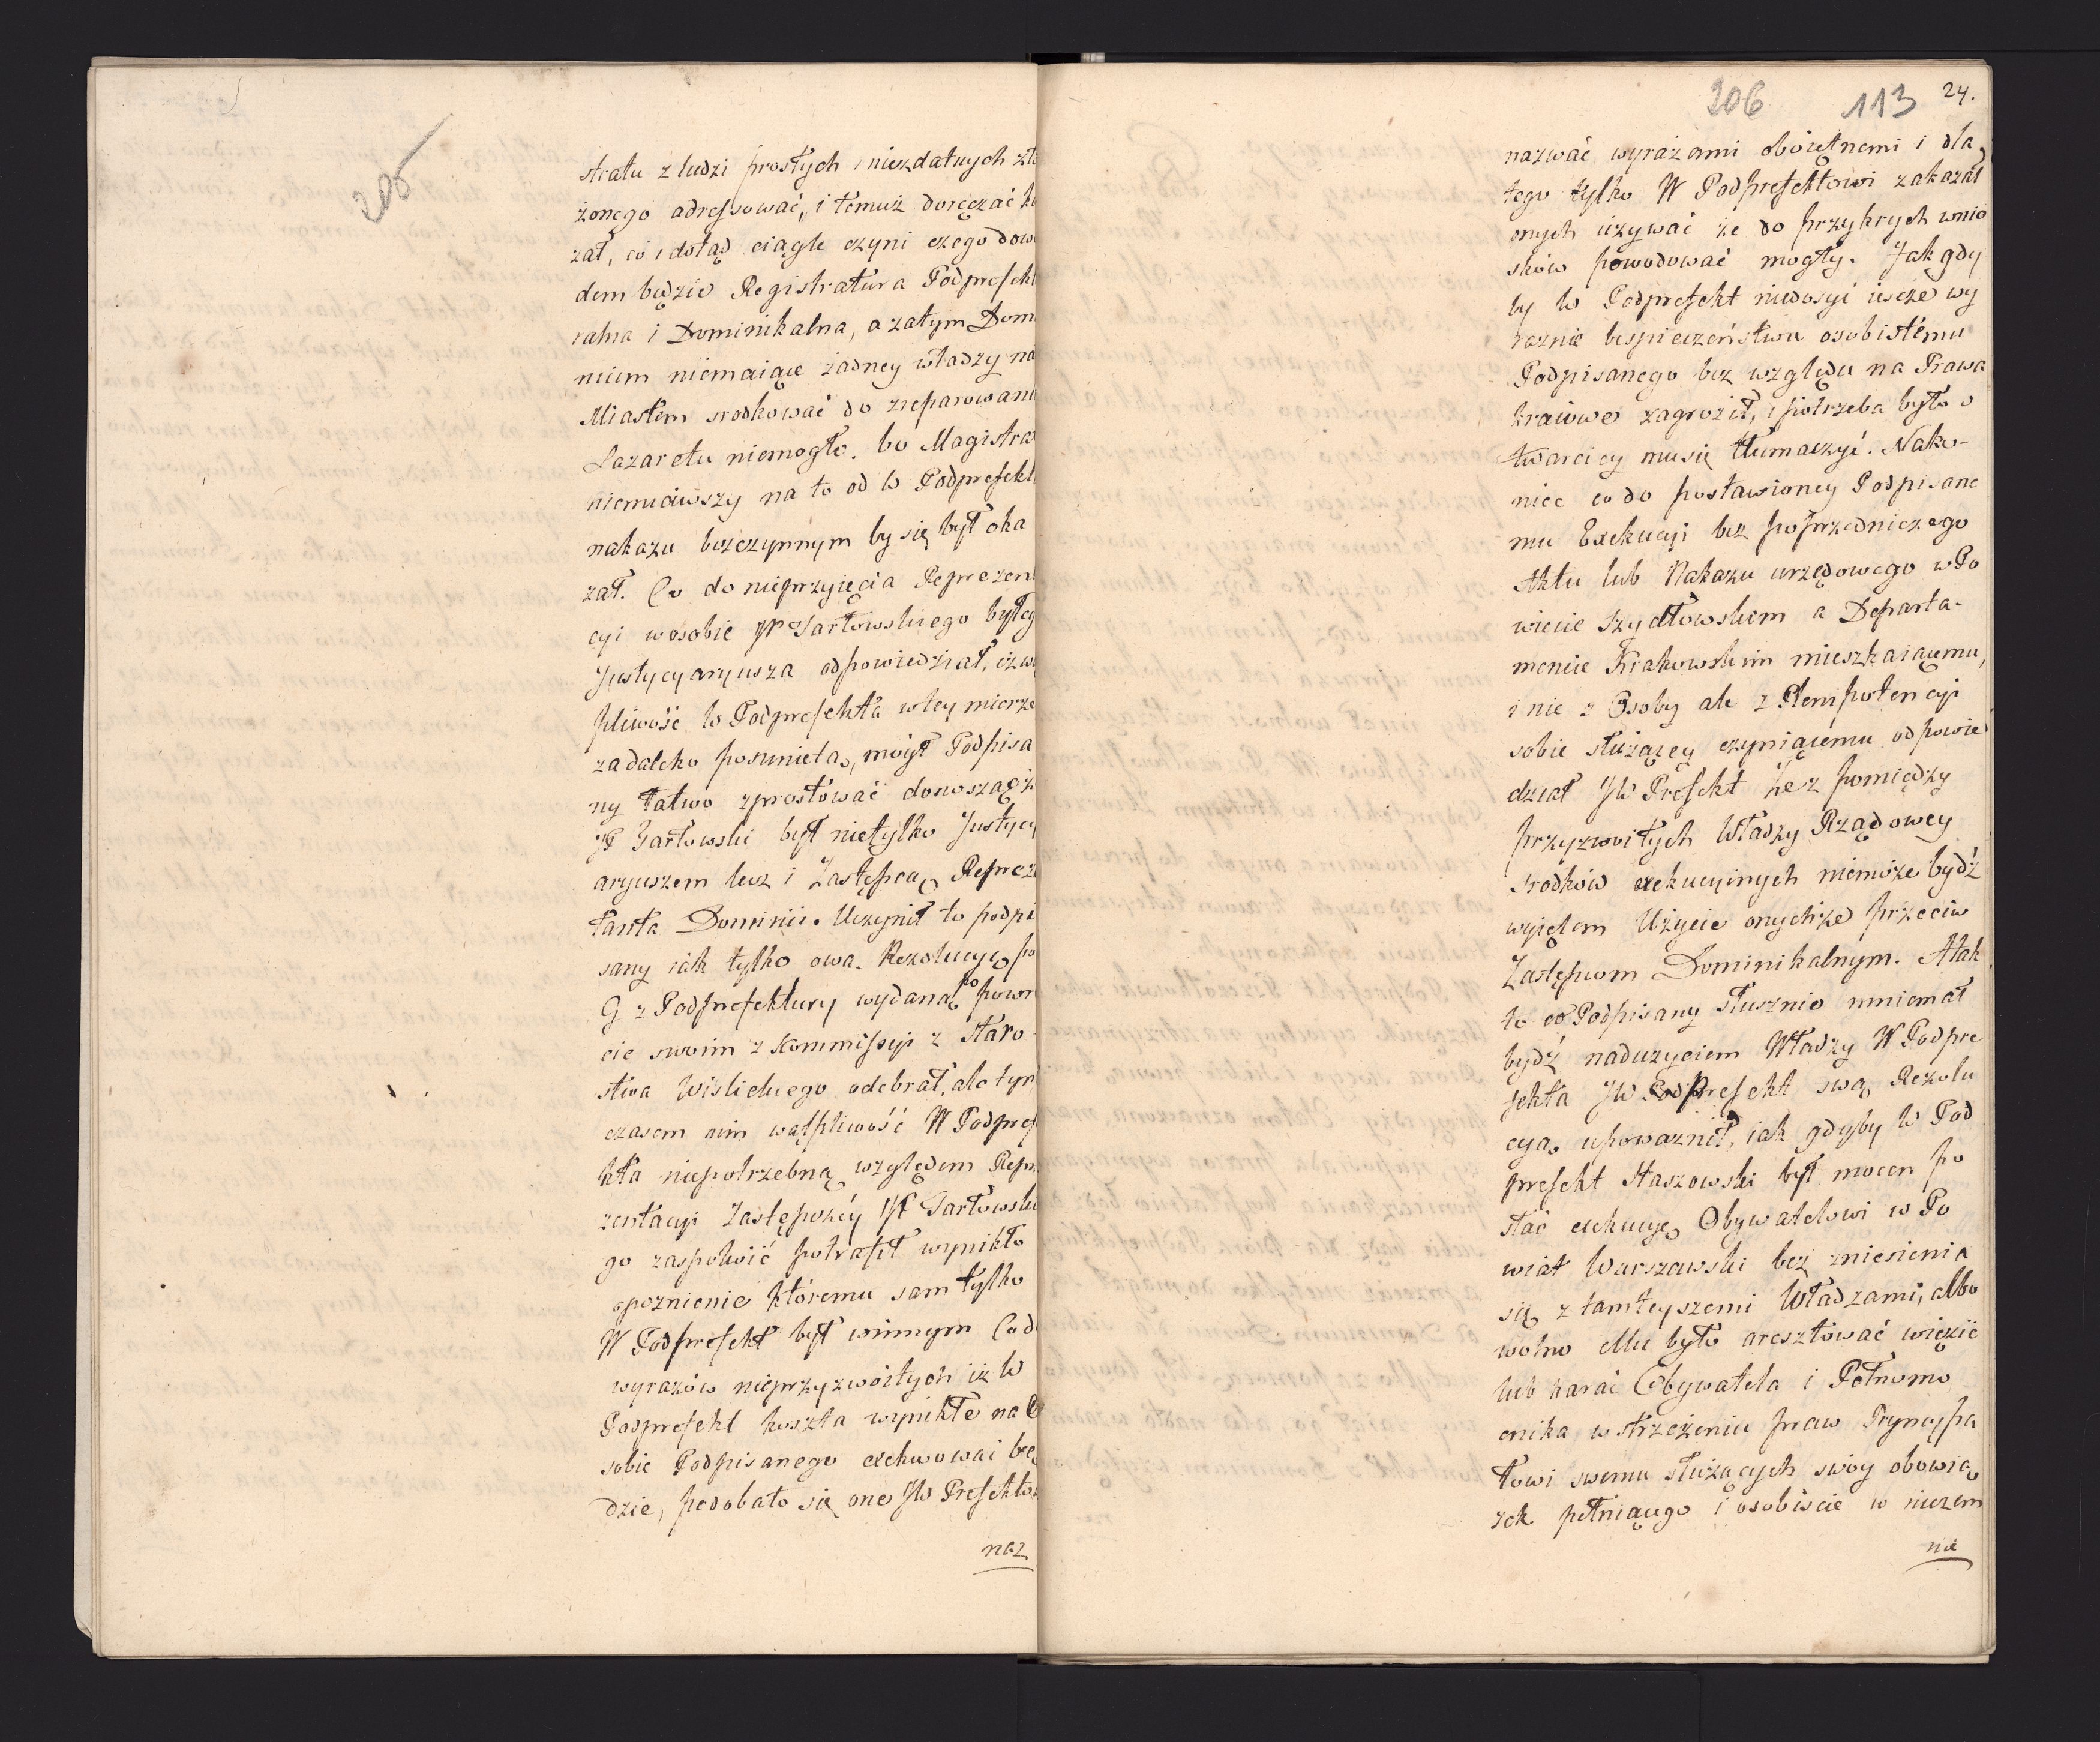 205
stratu z ludzi prostych i niezdatnych zło
żonego adressować, i temuż doręczać ka
zał, co i dotąd ciągle czyni czego dowo
dem będzie Registratura Podprefekt
ralna i Dominikalna, a zatym Domi
nium niemaiące żadney władzy nad
Miastem srodkować do zreparowania
Lazaretu niemogło. bo Magistrat
niemiawszy na to od W Podprefekta
nakazu bezczynnym by się był oka
zał. Co do nieprzyięcia Reprezent
cyi w osobie JP Żarłowskiego byłeg
Justycyaryusza odpowiedział, iż wą
pliwość W Podprefekta w tey mierze
zadaleko posunięta, mógł Podpisa
ny łatwo zprostować donosząc iż
JP Żarłowski był nietylko Justycy
aryuszem lecz i Zastępcą Repreze
tanta Dominii. Uczynił to podpi
sany iak tylko ową Rezolucyę po
G z Podprefektury wydaną po powro
cie swoim z Kommissyi z Staro-
stwa Wislickiego odebrał, ale tym
czasem nim wątpliwość W Podpref
kta niepotrzebną względem Repre
zentacyi Zastępczéy JP Żarłowskie
go zaspokoić potrafił wynikło
opoznienie któremu sam tylko
W Podprefekt był winnym Co do
wyrazów nieprzyzwoitych iż W
Podprefekt koszta wynikłe na O
sobie Podpisanego exekwować bę
dzie, podobało się one JW Prefektow
naz
206 113 24.
nazwać wyrazami oboiętnemi i dla
tego tylko W Podprefektowi zakazał
onych używać że do przykrych wnio
sków powodować mogły. Jak gdy
by W Podprefekt niedosyć ieszcze wy
raznie bespieczeństwu osobistému
Podpisanego bez względu na Prawa
kraiowe zagroził, i potrzeba było o
twarciey mu się tłumaczyć. Nako-
niec co do postawioney Podpisane
mu Exekucyi bez poprzedniczego
Aktu lub Nakazu urzędowego w Po
wiecie Szydłowskim a Departa-
mencie Krakowskim mieszkaiącemu,
i nie z Osoby ale z Plenipotencyi
sobie służącey czyniącemu odpowie
dział JW Prefekt że z pomiędzy
przyzwoitych Władzy Rządowey
srodków exekucyinych niemoże bydź
wyiętem Użycie onychże przeciw
Zastępcom Dominikalnym. A tak
to co Podpisany słusznie mniemał
bydź nadużyciem Władzy W Podpre
fekta JW Prefekt swą Rezolu
cyą upoważnił, iak gdyby W Pod
prefekt Staszowski był mocen po
słać exekucyę Obywatelowi w Po
wiat Warszawski bez zniesienia
się z tamteyszemi Władzami, albo
wolno Mu było aresztować więzić
lub karać Obywatela i Pełnomo
cnika w strzeżeniu praw Pryncypa
łowi swemu służących swóy obowią
zek pełniącego i osobiście w niczem
nie